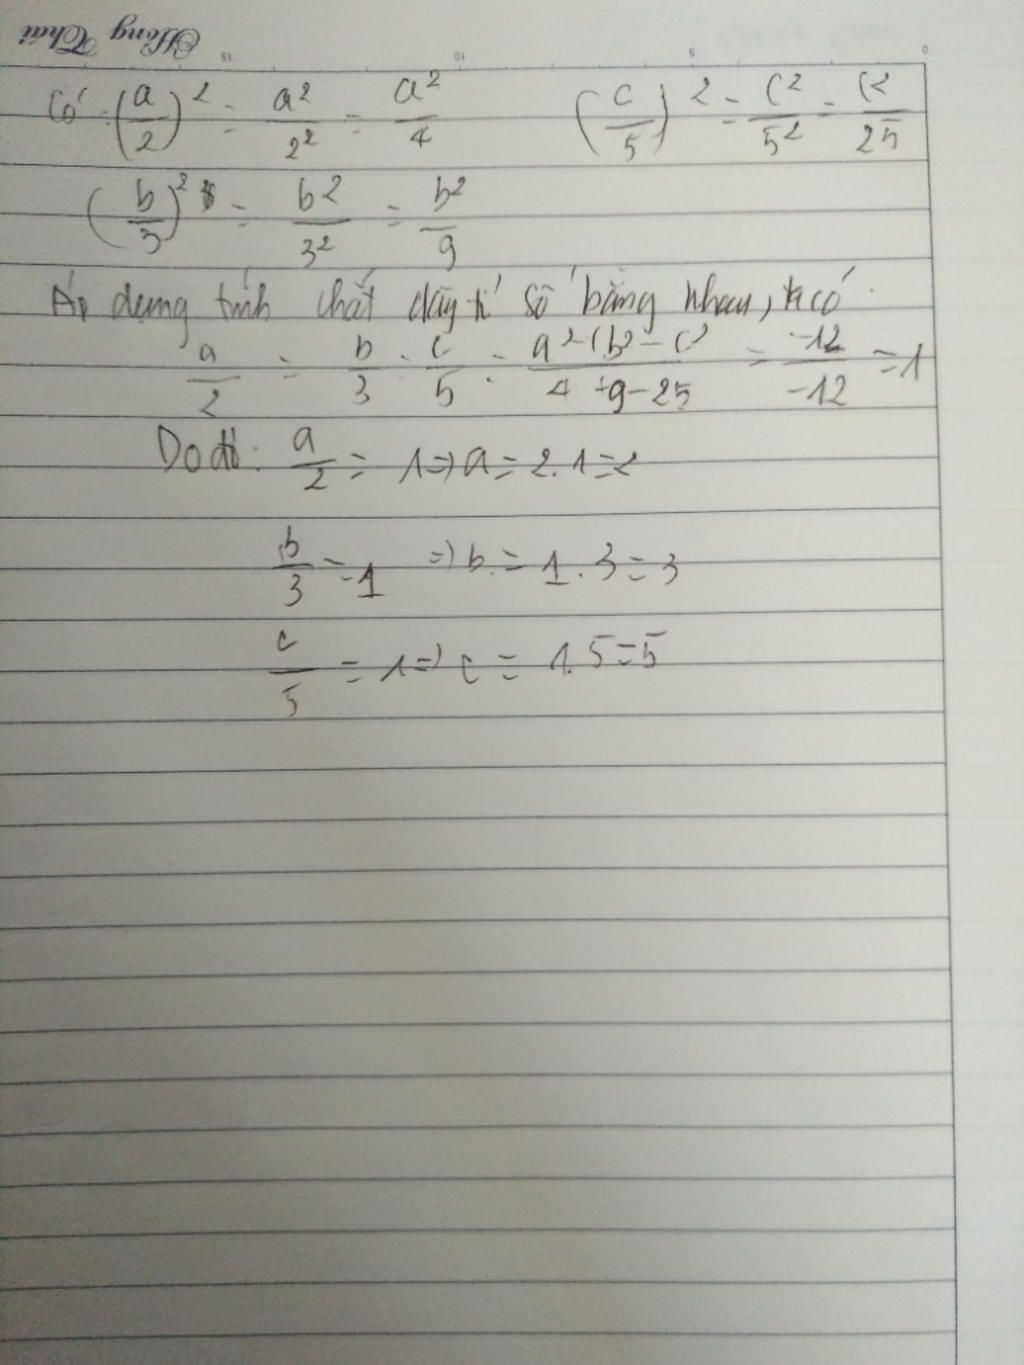 Hồng Thái 15 10 5 0
Có: (a/2)² = a²/2² = a²/4 (c/5)² = c²/5² = c²/25
(b/3)² = b²/3² = b²/9
Áp dụng tính chất dãy tỉ số bằng nhau, ta có
a/2 = b/3 = c/5 = a² + b² - c²/4 + 9 - 25 = -12/-12 = 1
Do đó: a/2 = 1 => a = 2.1 = 2
b/3 = 1 => b = 1.3 = 3
c/5 = 1 => c = 1.5 = 5